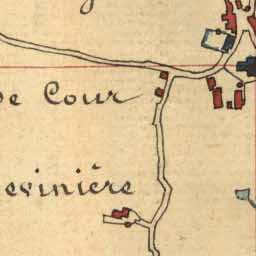 de Cour
evinière